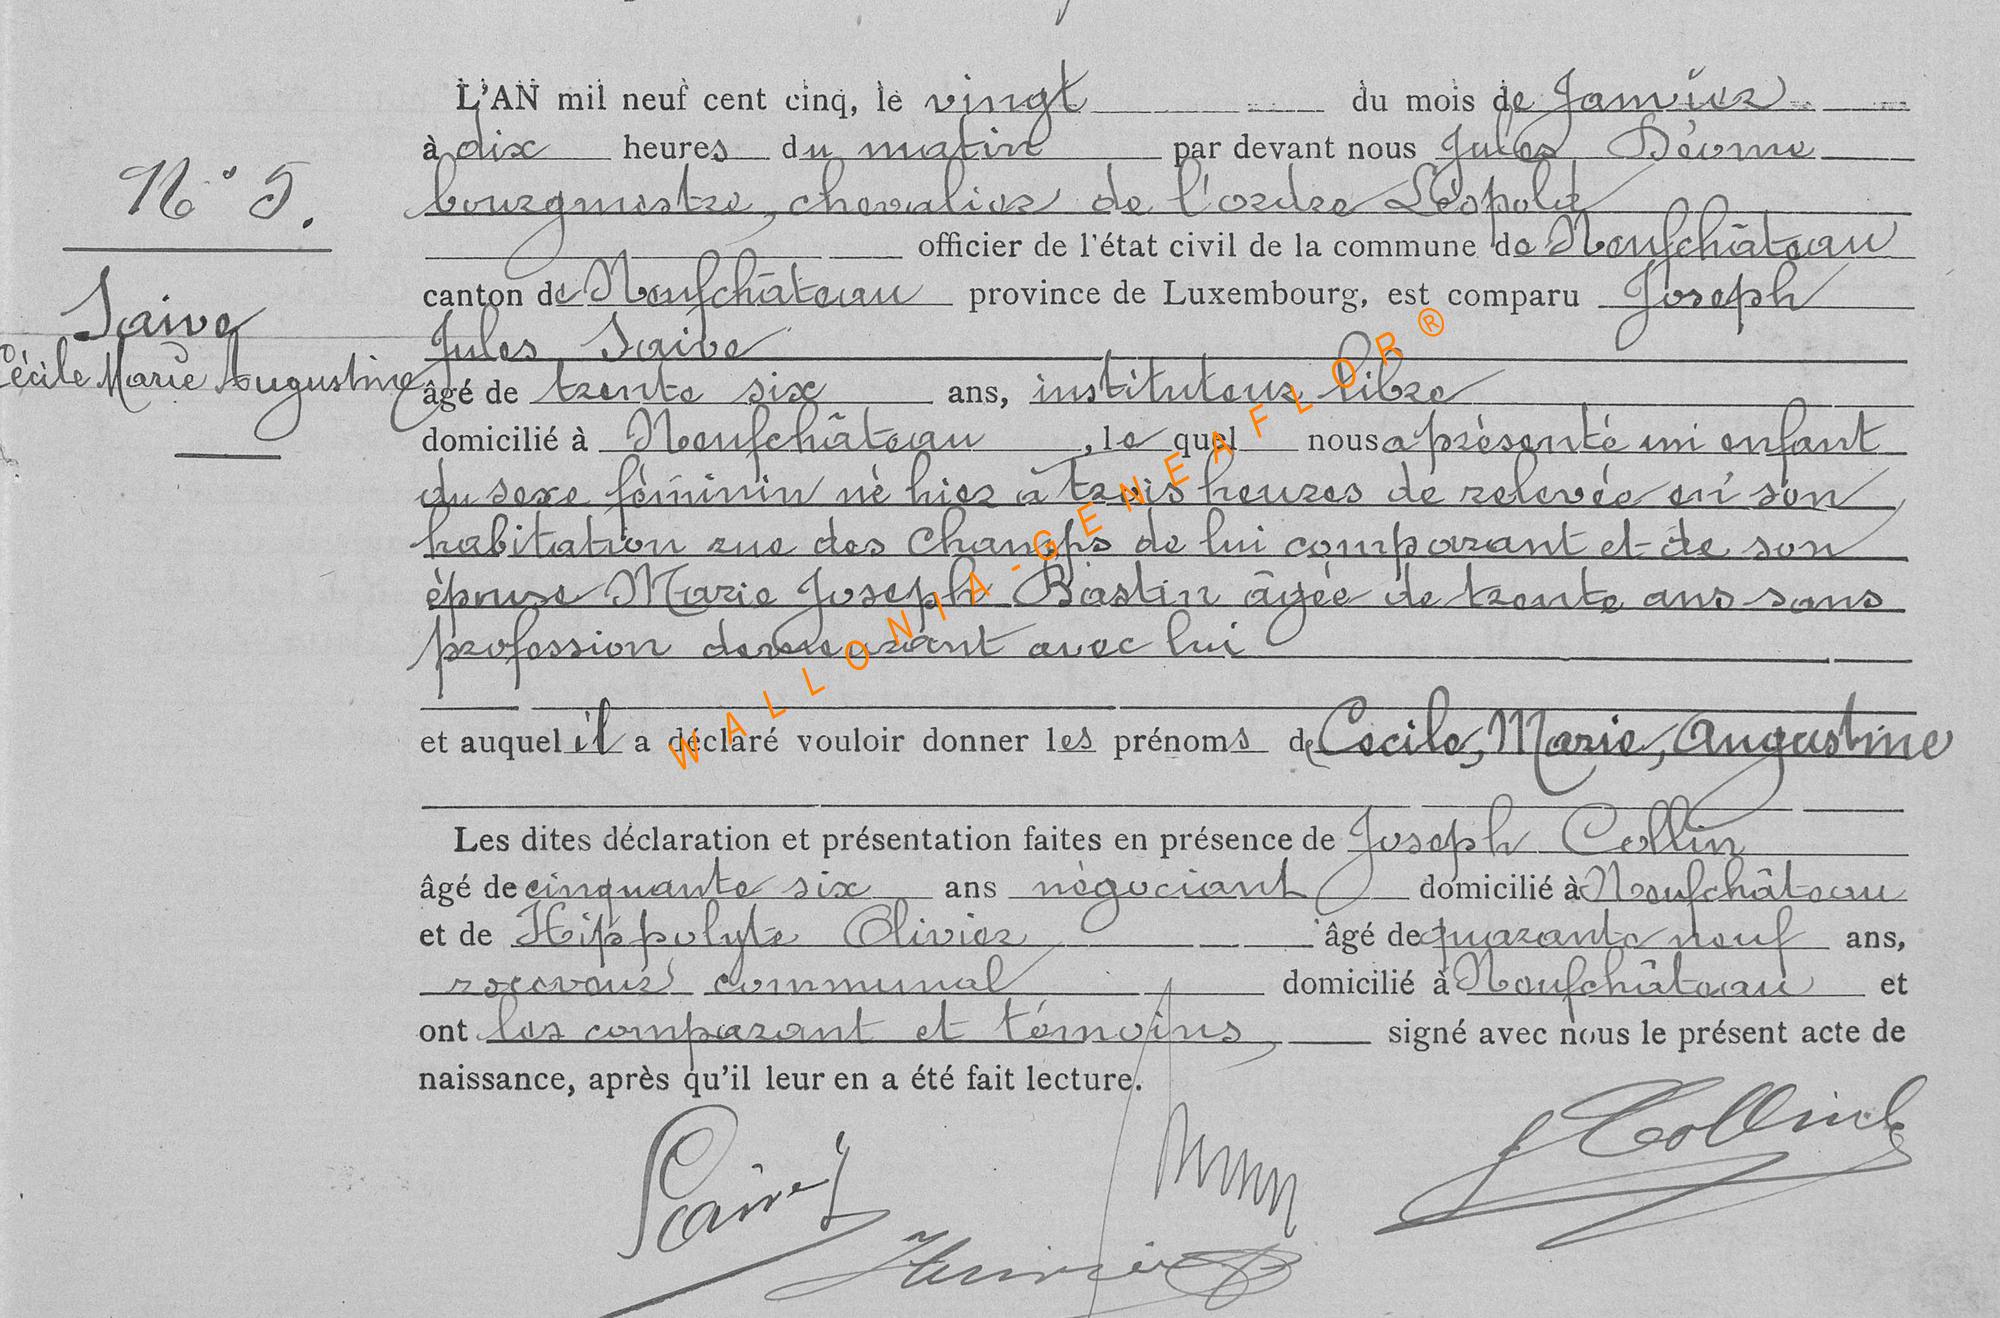 N° 5.
Saive
Cécile Marie Augustine
L'AN mil neuf cent cinq, le vingt du mois de Janvier
à dix heures du matin par devant nous Jules
bourgmestre, chevalier de l'ordre Léopold
officier de l'état civil de la commune de Neufchâteau
canton de Neufchâteau province de Luxembourg, est comparu Joseph
Jules Saive
âgé de trente six ans, instituteur libre
domicilié à Neufchâteau, le quel nous a présenté un enfant
du sexe féminin né hier à trois heures de relevée en son
habitation rue des Champs de lui comparant et de son
épouse Marie Joseph Bastin âgée de trente ans sans
profession demeurant avec lui
et auquel il a déclaré vouloir donner les prénoms de Cécile, Marie, Augustine
Les dites déclaration et présentation faites en présence de Joseph Collin
âgé de cinquante six ans négociant domicilié à Neufchâteau
et de Hippolyte Olivier âgé de quarante neuf ans,
receveur communal domicilié à Neufchâteau et
ont les comparant et témoins signé avec nous le présent acte de
naissance, après qu'il leur en a été fait lecture.
Saive J
J Collin
WALLONIA-GENEAFLOR®